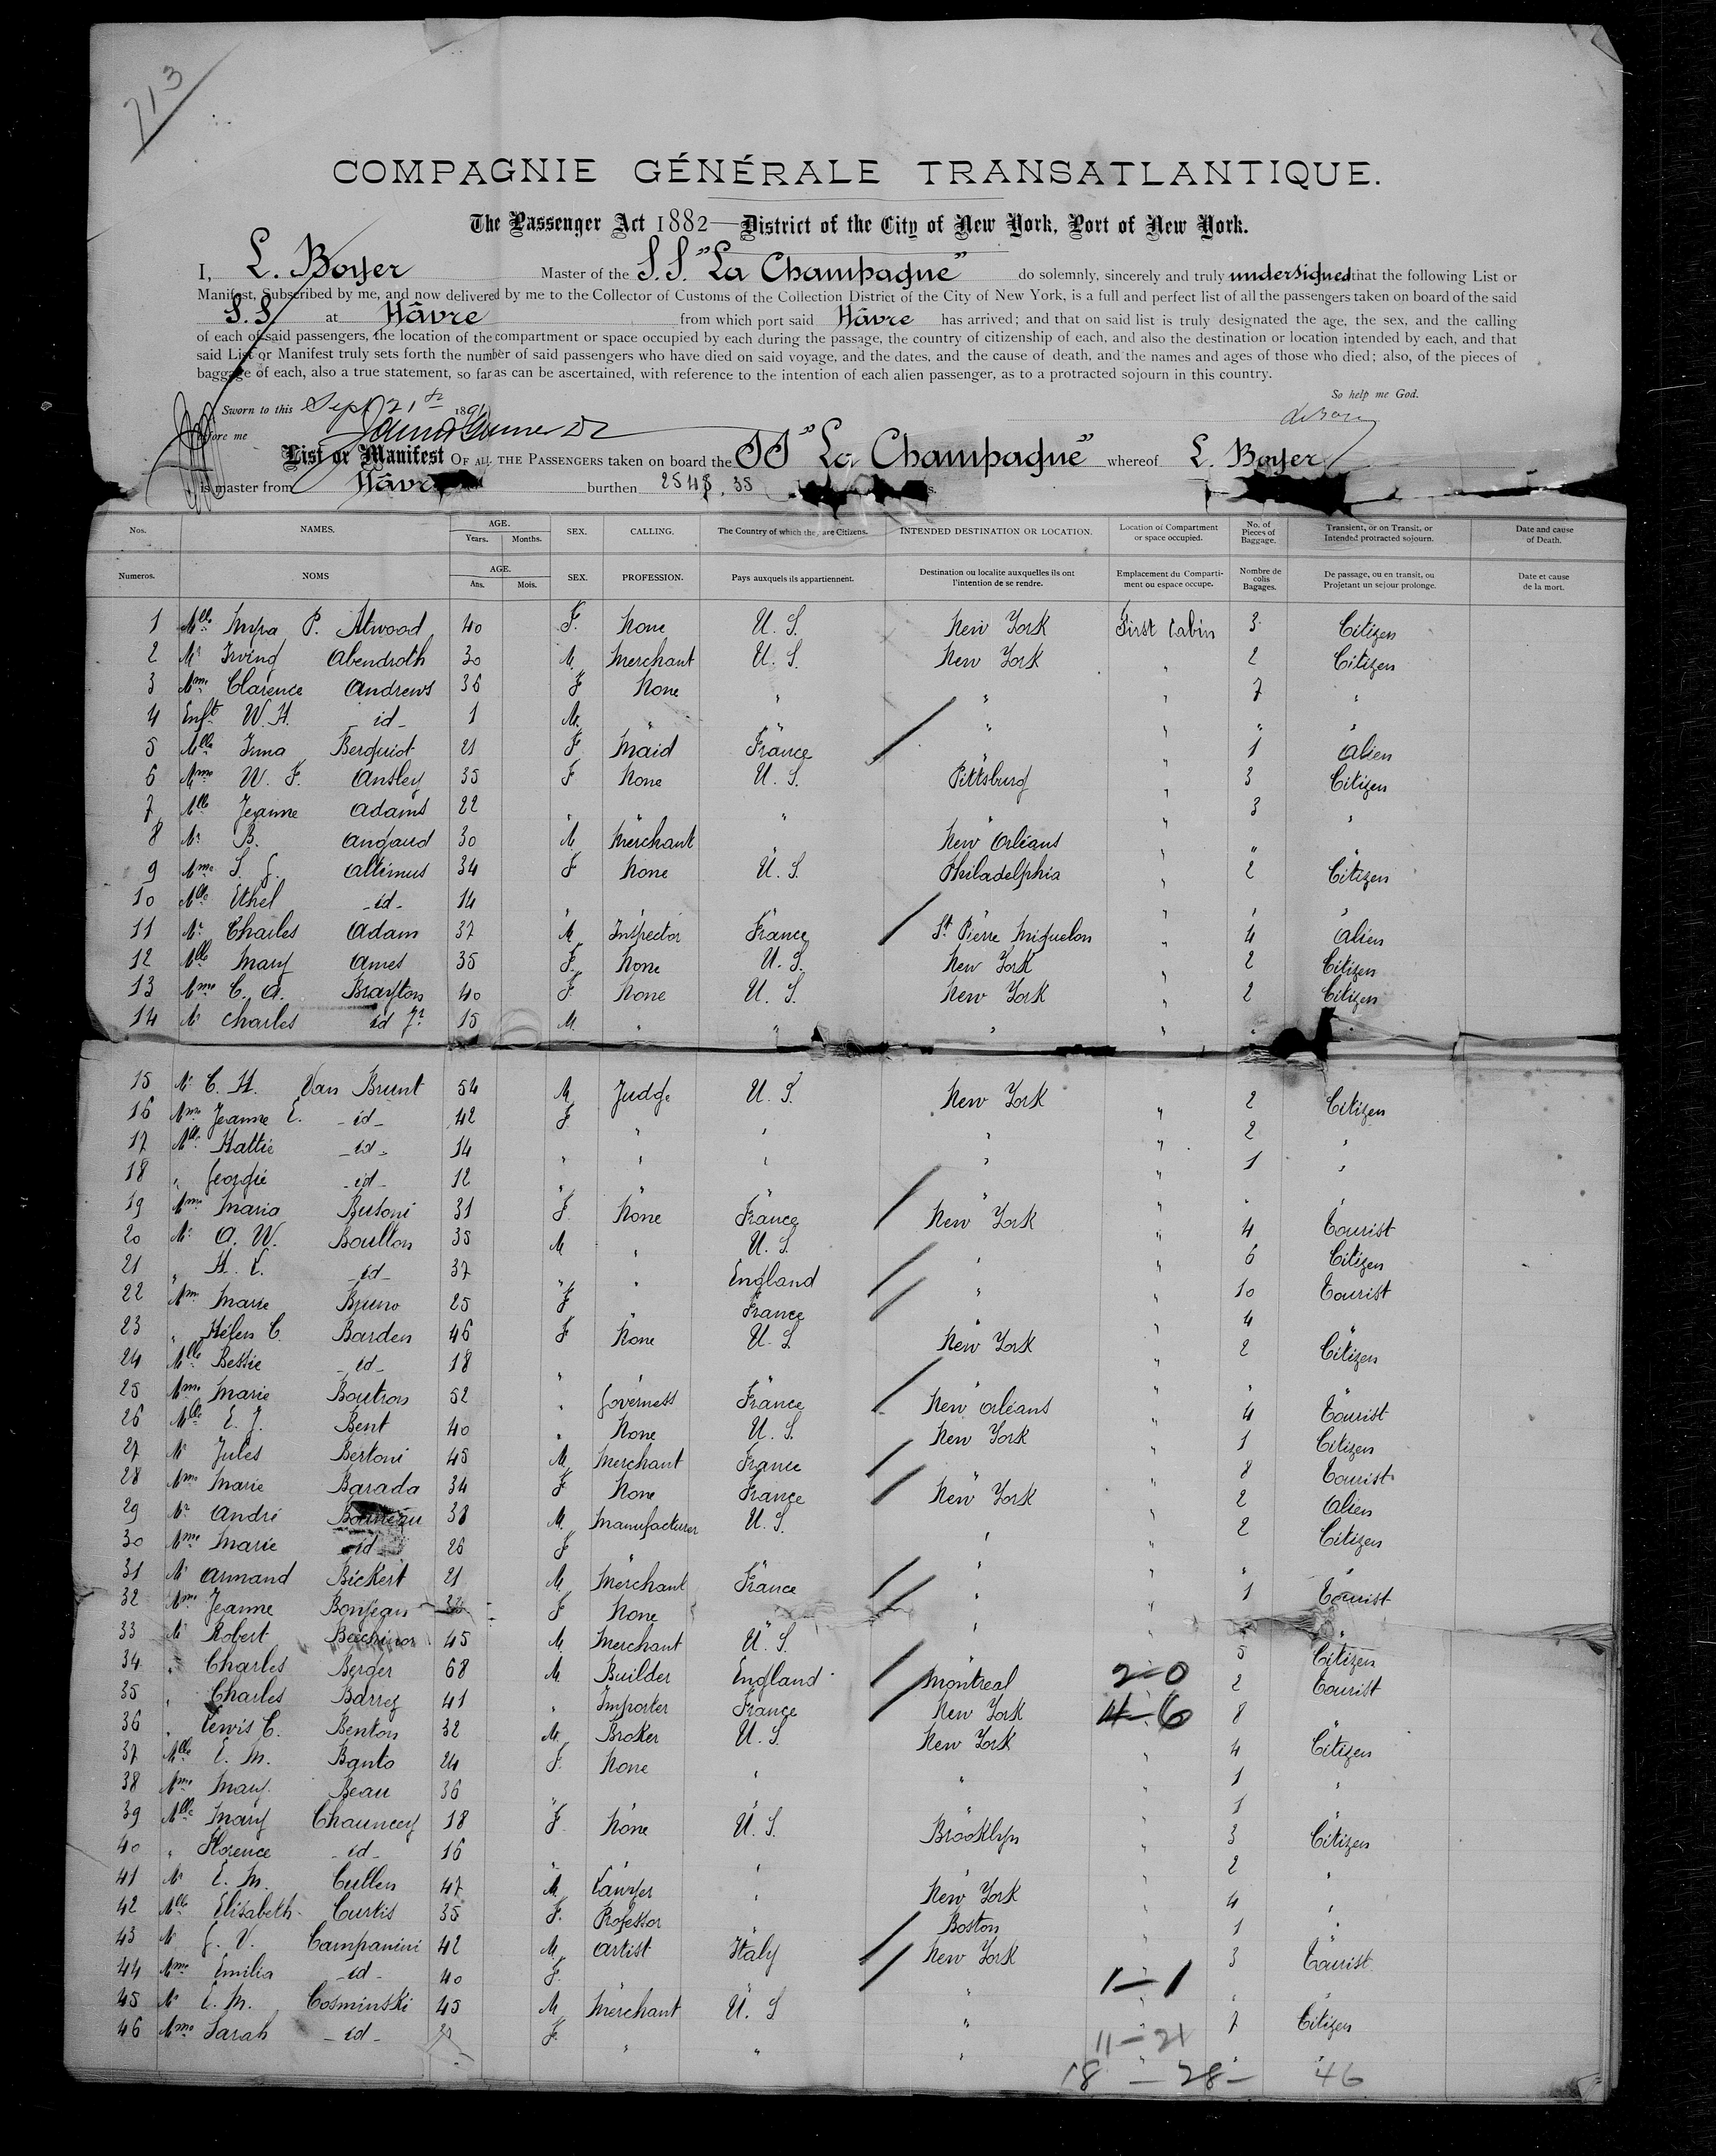 713
COMPAGNIE GÉNÉRALE TRANSATLANTIQUE.
The Passenger Act 1882—District of the City of New York, Port of New York.
I, L. Boyer Master of the S.S. "La Champagne" do solemnly, sincerely and truly undersigned that the following List or
Manifest, Subscribed by me, and now delivered by me to the Collector of Customs of the Collection District of the City of New York, is a full and perfect list of all the passengers taken on board of the said
S.S. at Hâvre from which port said Hâvre has arrived; and that on said list is truly designated the age, the sex, and the calling
of each of said passengers, the location of the compartment or space occupied by each during the passage, the country of citizenship of each, and also the destination or location intended by each, and that
said List or Manifest truly sets forth the number of said passengers who have died on said voyage, and the dates, and the cause of death, and the names and ages of those who died; also, of the pieces of
baggage of each, also a true statement, so far as can be ascertained, with reference to the intention of each alien passenger, as to a protracted sojourn in this country.
So help me God.
Sworn to this Sept 21st 1891
before me
List or Manifest OF ALL THE PASSENGERS taken on board the SS "La Champagne" whereof L. Boyer
is master from Hâvre burthen
Nos. NAMES. AGE. Years. Months. SEX. CALLING. The Country of which they are Citizens. INTENDED DESTINATION OR LOCATION. Location of Compartment or space occupied. No. of Pieces of Baggage. Transient, or on Transit, or Intended protracted sojourn. Date and cause of Death.
Numeros. NOMS AGE. Ans. Mois. SEX. PROFESSION. Pays auxquels ils appartiennent. Destination ou localite auxquelles ils ont l'intention de se rendre. Emplacement du Compartiment ou espace occupe. Nombre de colis Bagages. De passage, ou en transit, ou Projetant un sejour prolonge. Date et cause de la mort.
1 Mlle P. Atwood 40 F. None U.S. New York First Cabin 3 Citizen
2 Mr Irving Abendroth 30 M. Merchant U.S. New York " 2 Citizen
3 Mme Clarence Andrews 36 F None " " " 7 "
4 Enft W.H. -id- 1 M. " " " " " "
5 Mlle Irma Berquist 21 F Maid France " " 1 Alien
6 Mme W. F. Ansley 35 F None U.S. Pittsburg " 3 Citizen
7 Mlle Jeanne Adams 22 " " " " " 3 "
8 Mr B. Angaud 30 M Merchant New Orléans " " "
9 Mme S. J. Altemus 34 F None U.S. Philadelphia " 2 Citizen
10 Mlle Ethel -id- 14 " " " " " " "
11 Mr Charles Adam 37 M Inspector France St Pierre Miquelon " 4 Alien
12 Mlle Mary Ames 35 F. None U.S. New York " 2 Citizen
13 Mme C. A. Brayton 40 F None U.S. New York " 2 Citizen
14 Mr Charles id Jr 15 M. " " " "
15 Mr C. H. Van Brunt 54 M Judge U.S. New York " 2 Citizen
16 Mme Jeanne E. -id- 42 F " " " " 2 "
17 Mlle Hattie -id- 14 " " " " " 1 "
18 " Georgie -id- 12 " " " " " " "
19 Mme Maria Busoni 31 F None France New York " 4 Tourist
20 Mr A. W. Boullon 35 M " U.S. " " 6 Citizen
21 " H. E. -id- 37 " " England " " 10 Tourist
22 Mme Marie Bruno 25 F " France " " 4 "
23 " Hélen C. Barden 46 F None U.S. New York " 2 Citizen
24 Mlle Bessie -id- 18 " " " " " " "
25 Mme Marie Boutron 52 " Governess France New Orléans " 4 Tourist
26 Mlle E. J. Bent 40 " None U.S. New York " 1 Citizen
27 Mr Jules Bertoni 45 M Merchant France " " 8 Tourist
28 Mme Marie Barada 34 F None France New York " 2 Alien
29 Mr André 38 M. Manufacturer U.S. " " 2 Citizen
30 Mme Marie -id- 26 F " " " " " "
31 Mr Armand Bickert 21 M. Merchant France " " 1 Tourist
32 Mme Jeanne Bonjean F None " " " " "
33 Mr Robert 45 M Merchant U.S. " " 5 Citizen
34 " Charles Berger 68 M. Builder England Montreal 2-0 2 Tourist
35 " Charles Barrez 41 " Importer France New York 4-6 8 "
36 " Lewis C. Benton 32 M. Broker U.S. New York " 4 Citizen
37 Mlle E. M. Banto 24 F. None " " " 1 "
38 Mme Mary Beau 36 " " " " " 1 "
39 Mlle Mary Chauncey 18 F None U.S. Brooklyn " 3 Citizen
40 " Florence -id- 16 " " " " " 2 "
41 Mr E. M. Cullen 47 M Lawyer " New York " 4 "
42 Mlle Elisabeth Curtis 35 F. Professor " Boston " 1 "
43 Mr J. V. Campanini 42 M Artist Italy New York " 3 Tourist
44 Mme Emilia -id- 40 F. " " " 1-1 " "
45 Mr E. M. Cosminski 45 M Merchant U.S " " 7 Citizen
46 Mme Sarah -id- F. " " " 11-21 " "
18 - 28 - 46